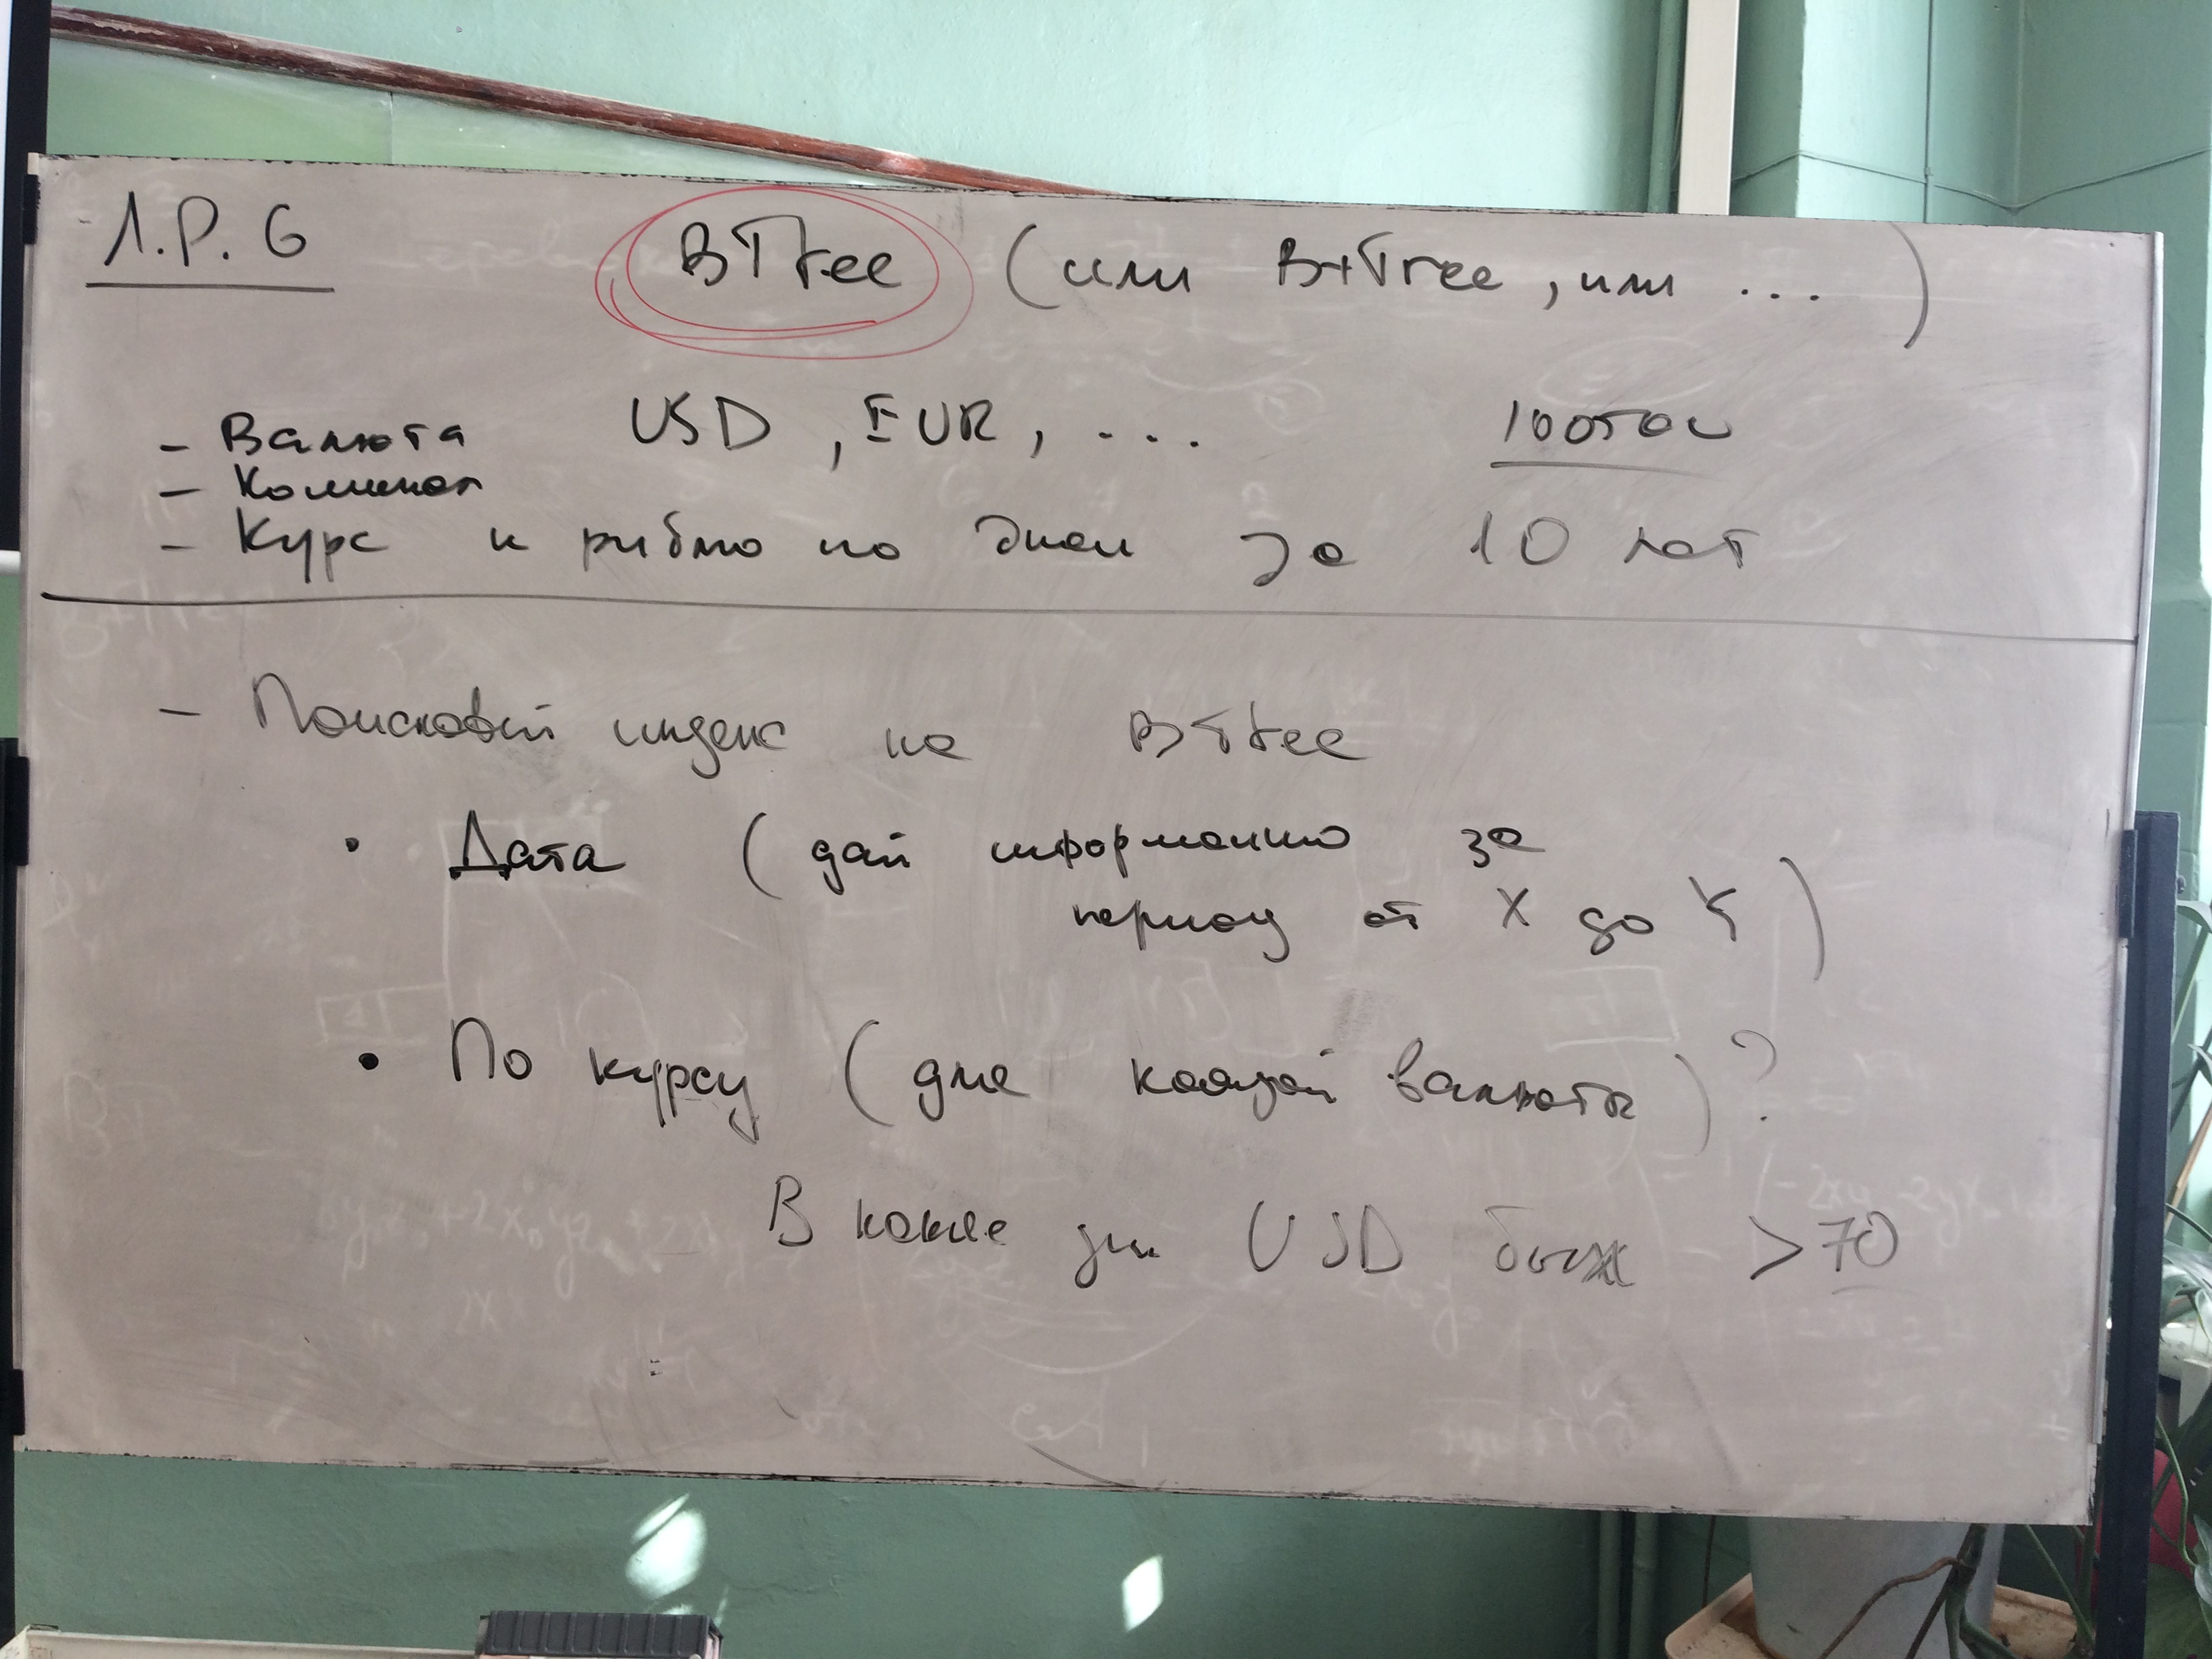 Л.Р. 6 BTree (или B+Tree, или ...)
- Валюта USD, EUR, ...
- Номинал
- Курс к рублю по дням за 10 лет
- Поисковый индекс на BTree
• Дата (дай информацию за
период от X до Y)
• По курсу (для каждой валюты)?
В какие дни USD был > 70